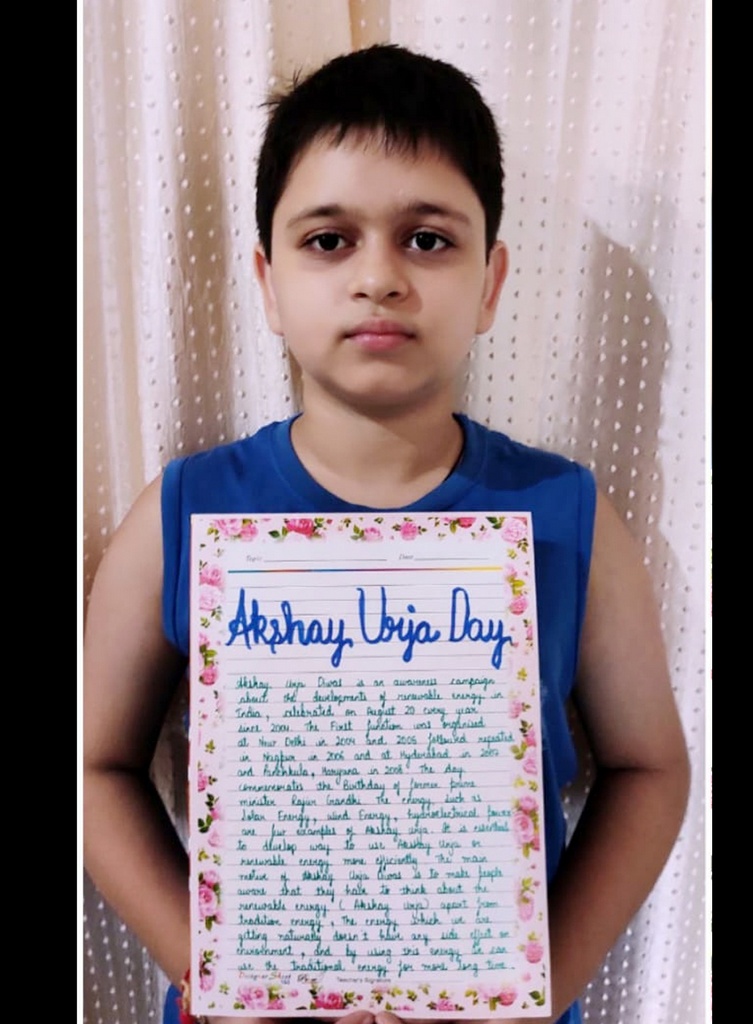 Topic: Date:
Akshay Urja Day
Akshay Urja Diwas is an awareness campaign
about the developments of renewable energy in
India, celebrated on August 20 every year
since 2004. The First function was organised
at New Delhi in 2004 and 2005 followed repeated
in Nagpur in 2006 and at Hyderabad in 2007
and Panchkula, Haryana in 2008. The day
commemorates the Birthday of former prime
minister Rajiv Gandhi. The energy such as
Solar Energy, wind Energy, hydroelectrical power
are few examples of Akshay urja. It is essential
to develop way to use Akshay Urja or
renewable energy more efficiently. The main
motive of Akshay Urja Diwas is to make people
aware that they have to think about the
renewable energy (Akshay Urja) apart from
tradition energy. The energy which we are
getting naturally doesn't have any side effect on
environment, and by using this energy we can
use the traditional energy for more long time.
Designer Sheet Teacher's Signature